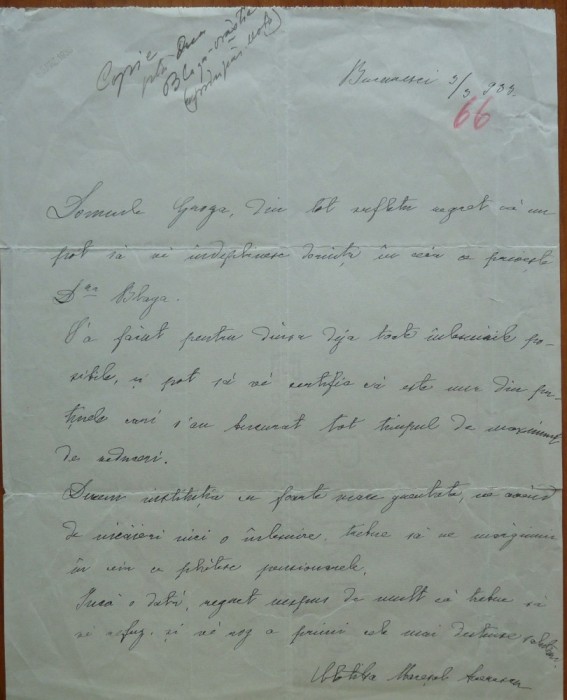 Copie
D-na
Blaga
București 5/3 903.
66
Domnule Goga, din tot sufletu regret că nu
pot să vă îndeplinesc dorința în ceea ce privește
D-na Blaga.
S'a făcut pentru dînsa deja toate înlesnirile po-
sibile, și pot să vă certific că este una din pu-
ținele cari s'au bucurat tot timpul de maximum
de reduceri.
Ducem instituția cu foarte mare greutate, ne avînd
de nicăieri nici o înlesnire, trebue să ne mărginim
în ceia ce plătesc pensionarele.
Încă o dată, regret nespus de mult că trebue să
vă refuz și vă rog a primi cele mai distinse salutări